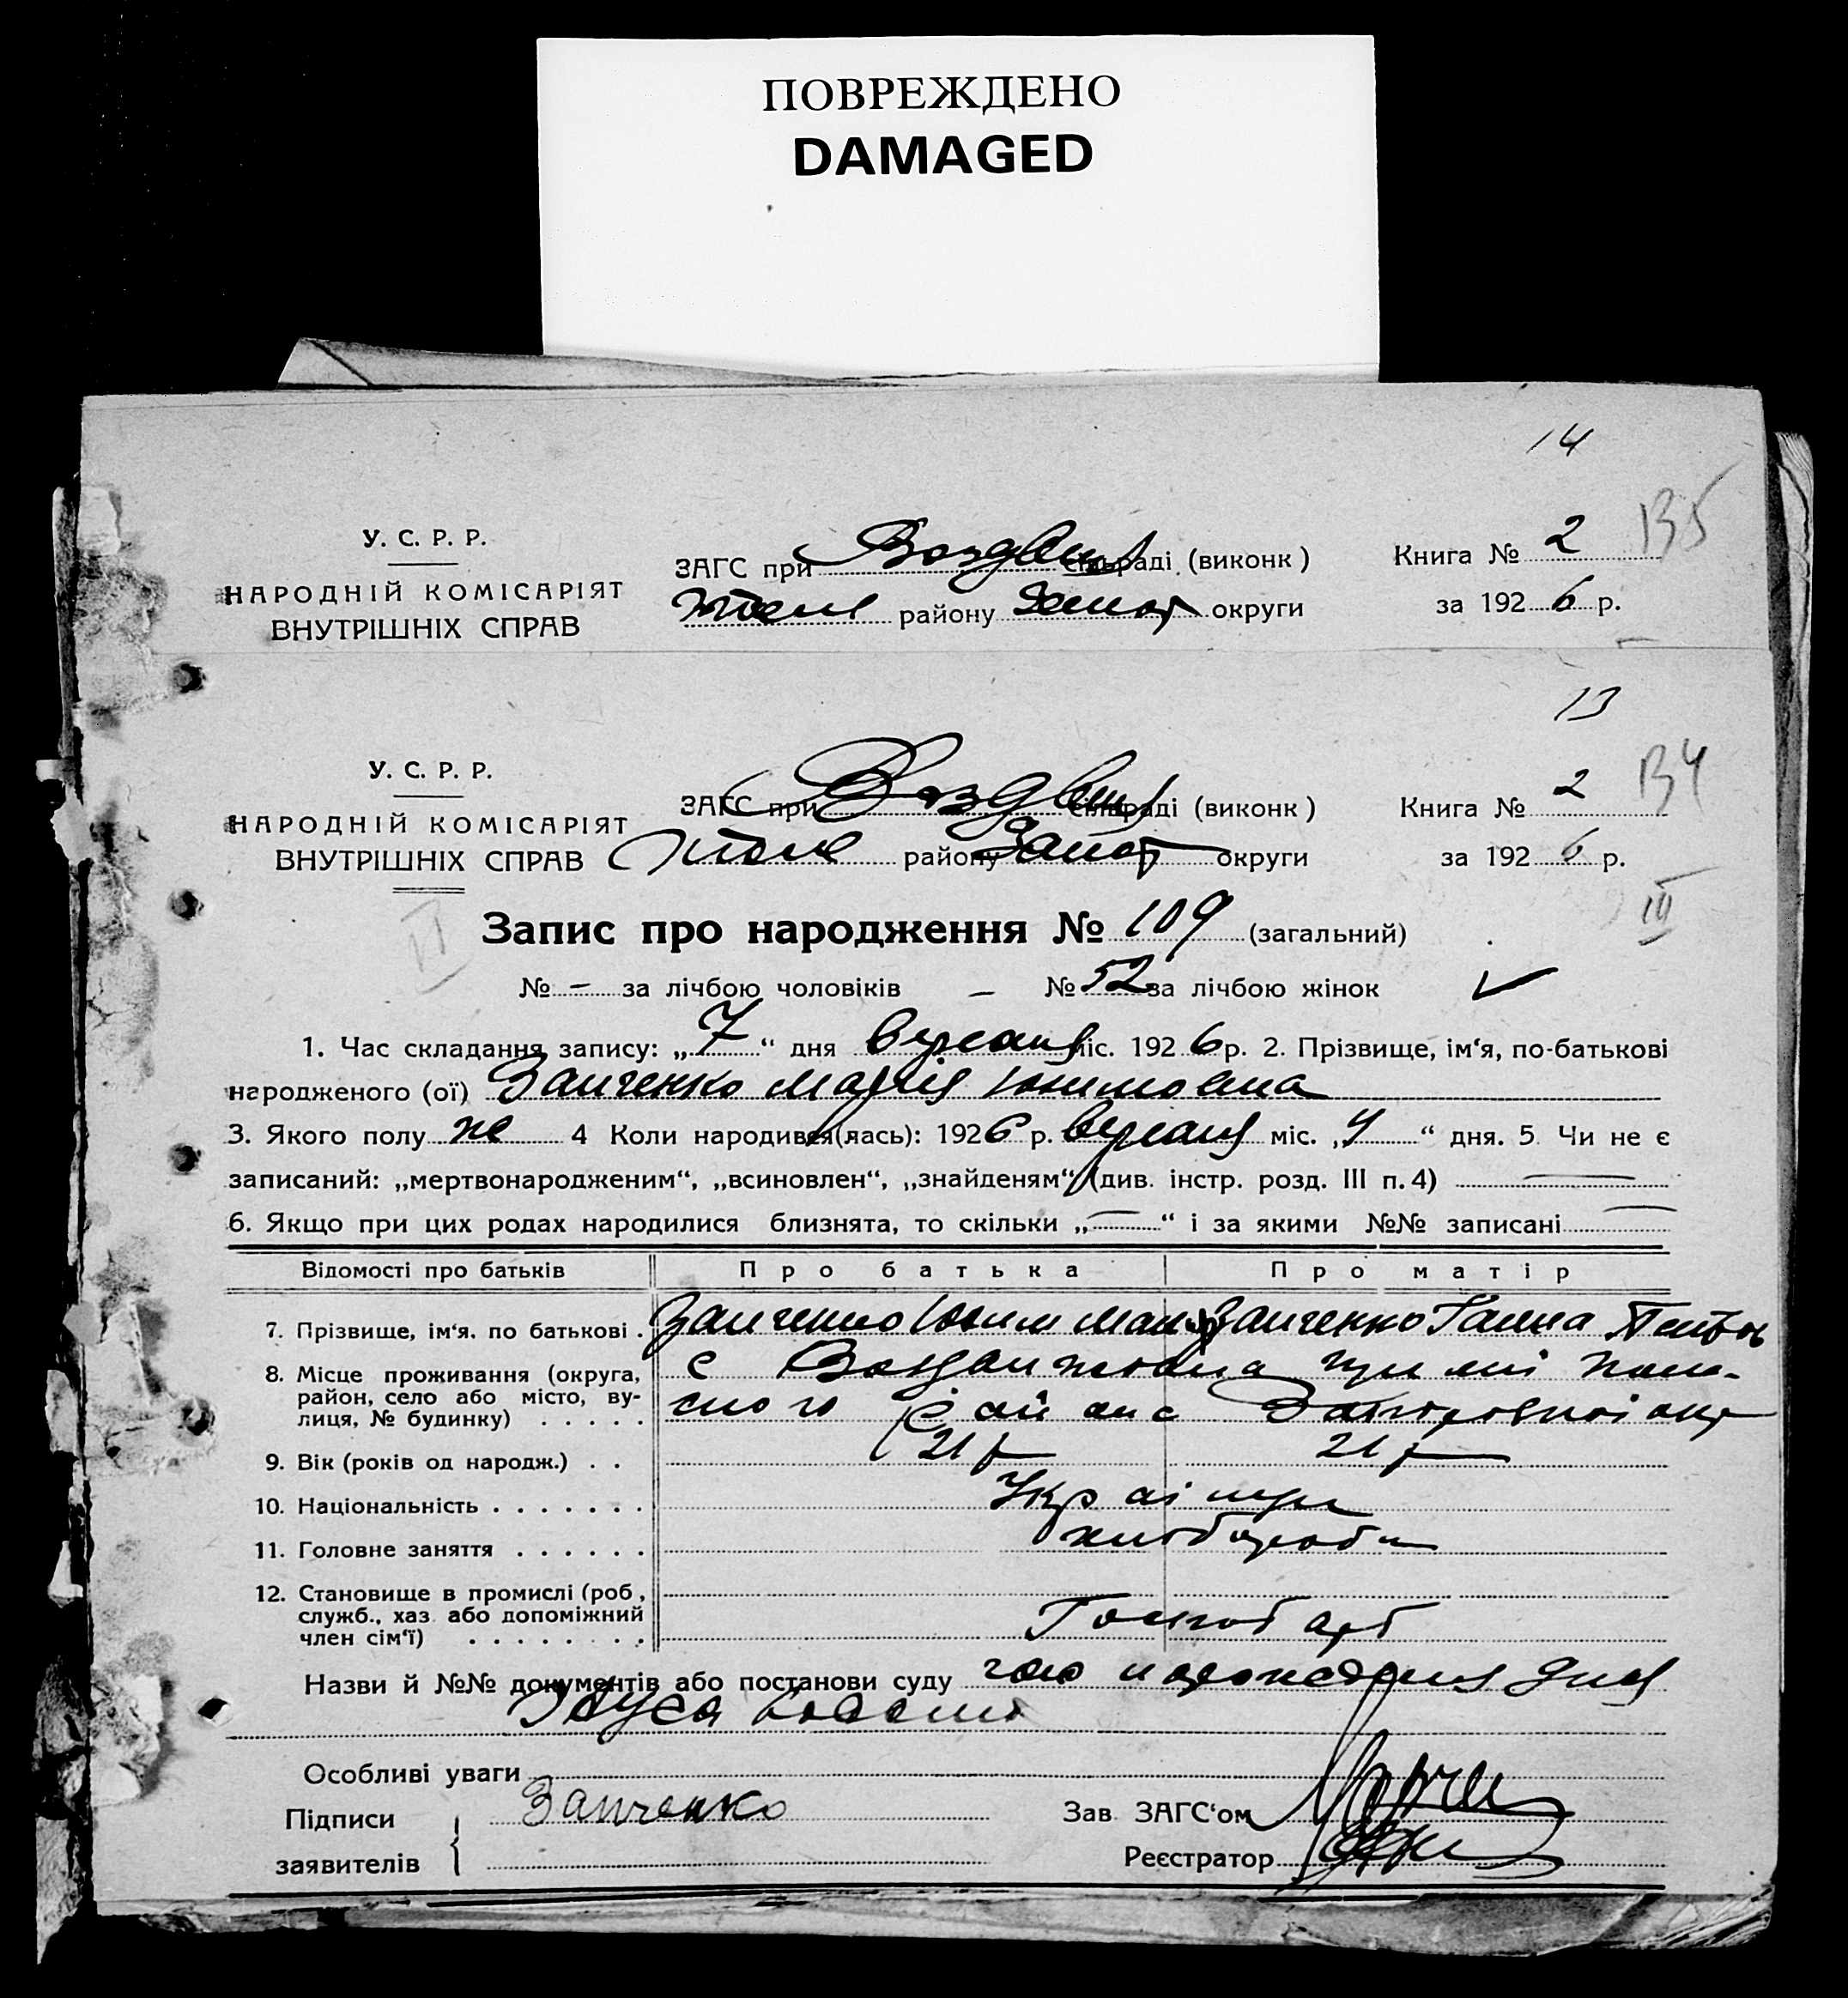 ПОВРЕЖДЕНО
DAMAGED
14
У. С. Р. Р.
НАРОДНІЙ КОМІСАРІЯТ
ВНУТРІШНІХ СПРАВ
ЗАГС при Воздвиж сільраді (виконк)
району Запор округи
Книга № 2
за 1926 р.
В5
13
У. С. Р. Р.
НАРОДНІЙ КОМІСАРІЯТ
ВНУТРІШНІХ СПРАВ
ЗАГС при Воздвиж сільраді (виконк)
району Запор округи
Книга № 2
за 1926 р.
В4
III
II
Запис про народження № 109 (загальний)
№ – за лічбою чоловіків – № 52 за лічбою жінок
1. Час складання запису: „7“ дня вересня міс. 1926 р. 2. Прізвище, ім‘я, по-батькові
народженого (ої) Заиченко Марія Юхимовна
3. Якого полу же 4 Коли народився(лась): 1926 р. вересня міс. „4“ дня. 5. Чи не є
записаний: „мертвонародженим“, „всиновлен“, „знайденям“ (див. інстр. розд. III п. 4) —
6. Якщо при цих родах народилися близнята, то скільки „—“ і за якими №№ записані —
Відомості про батьків Про батька Про матір
7. Прізвище, ім‘я. по батькові . Заиченко Юхим Заиченко Ганна
8. Місце проживання (округа, с
район, село або місто, ву-
лиця, № будинку) . . . . . району
9. Вік (років од народж.) . . 21 р 21 р
10. Національність . . . . . . . Українці
11. Головне заняття . . . . . . хлібороби
12. Становище в промислі (роб,
служб., хаз. або допоміжний
член сім‘ї) . . . . . . . .
Назви й №№ документів або постанови суду
Особливі уваги
Підписи
заявителів
Заиченко
Зав ЗАГС‘ом
Реєстратор